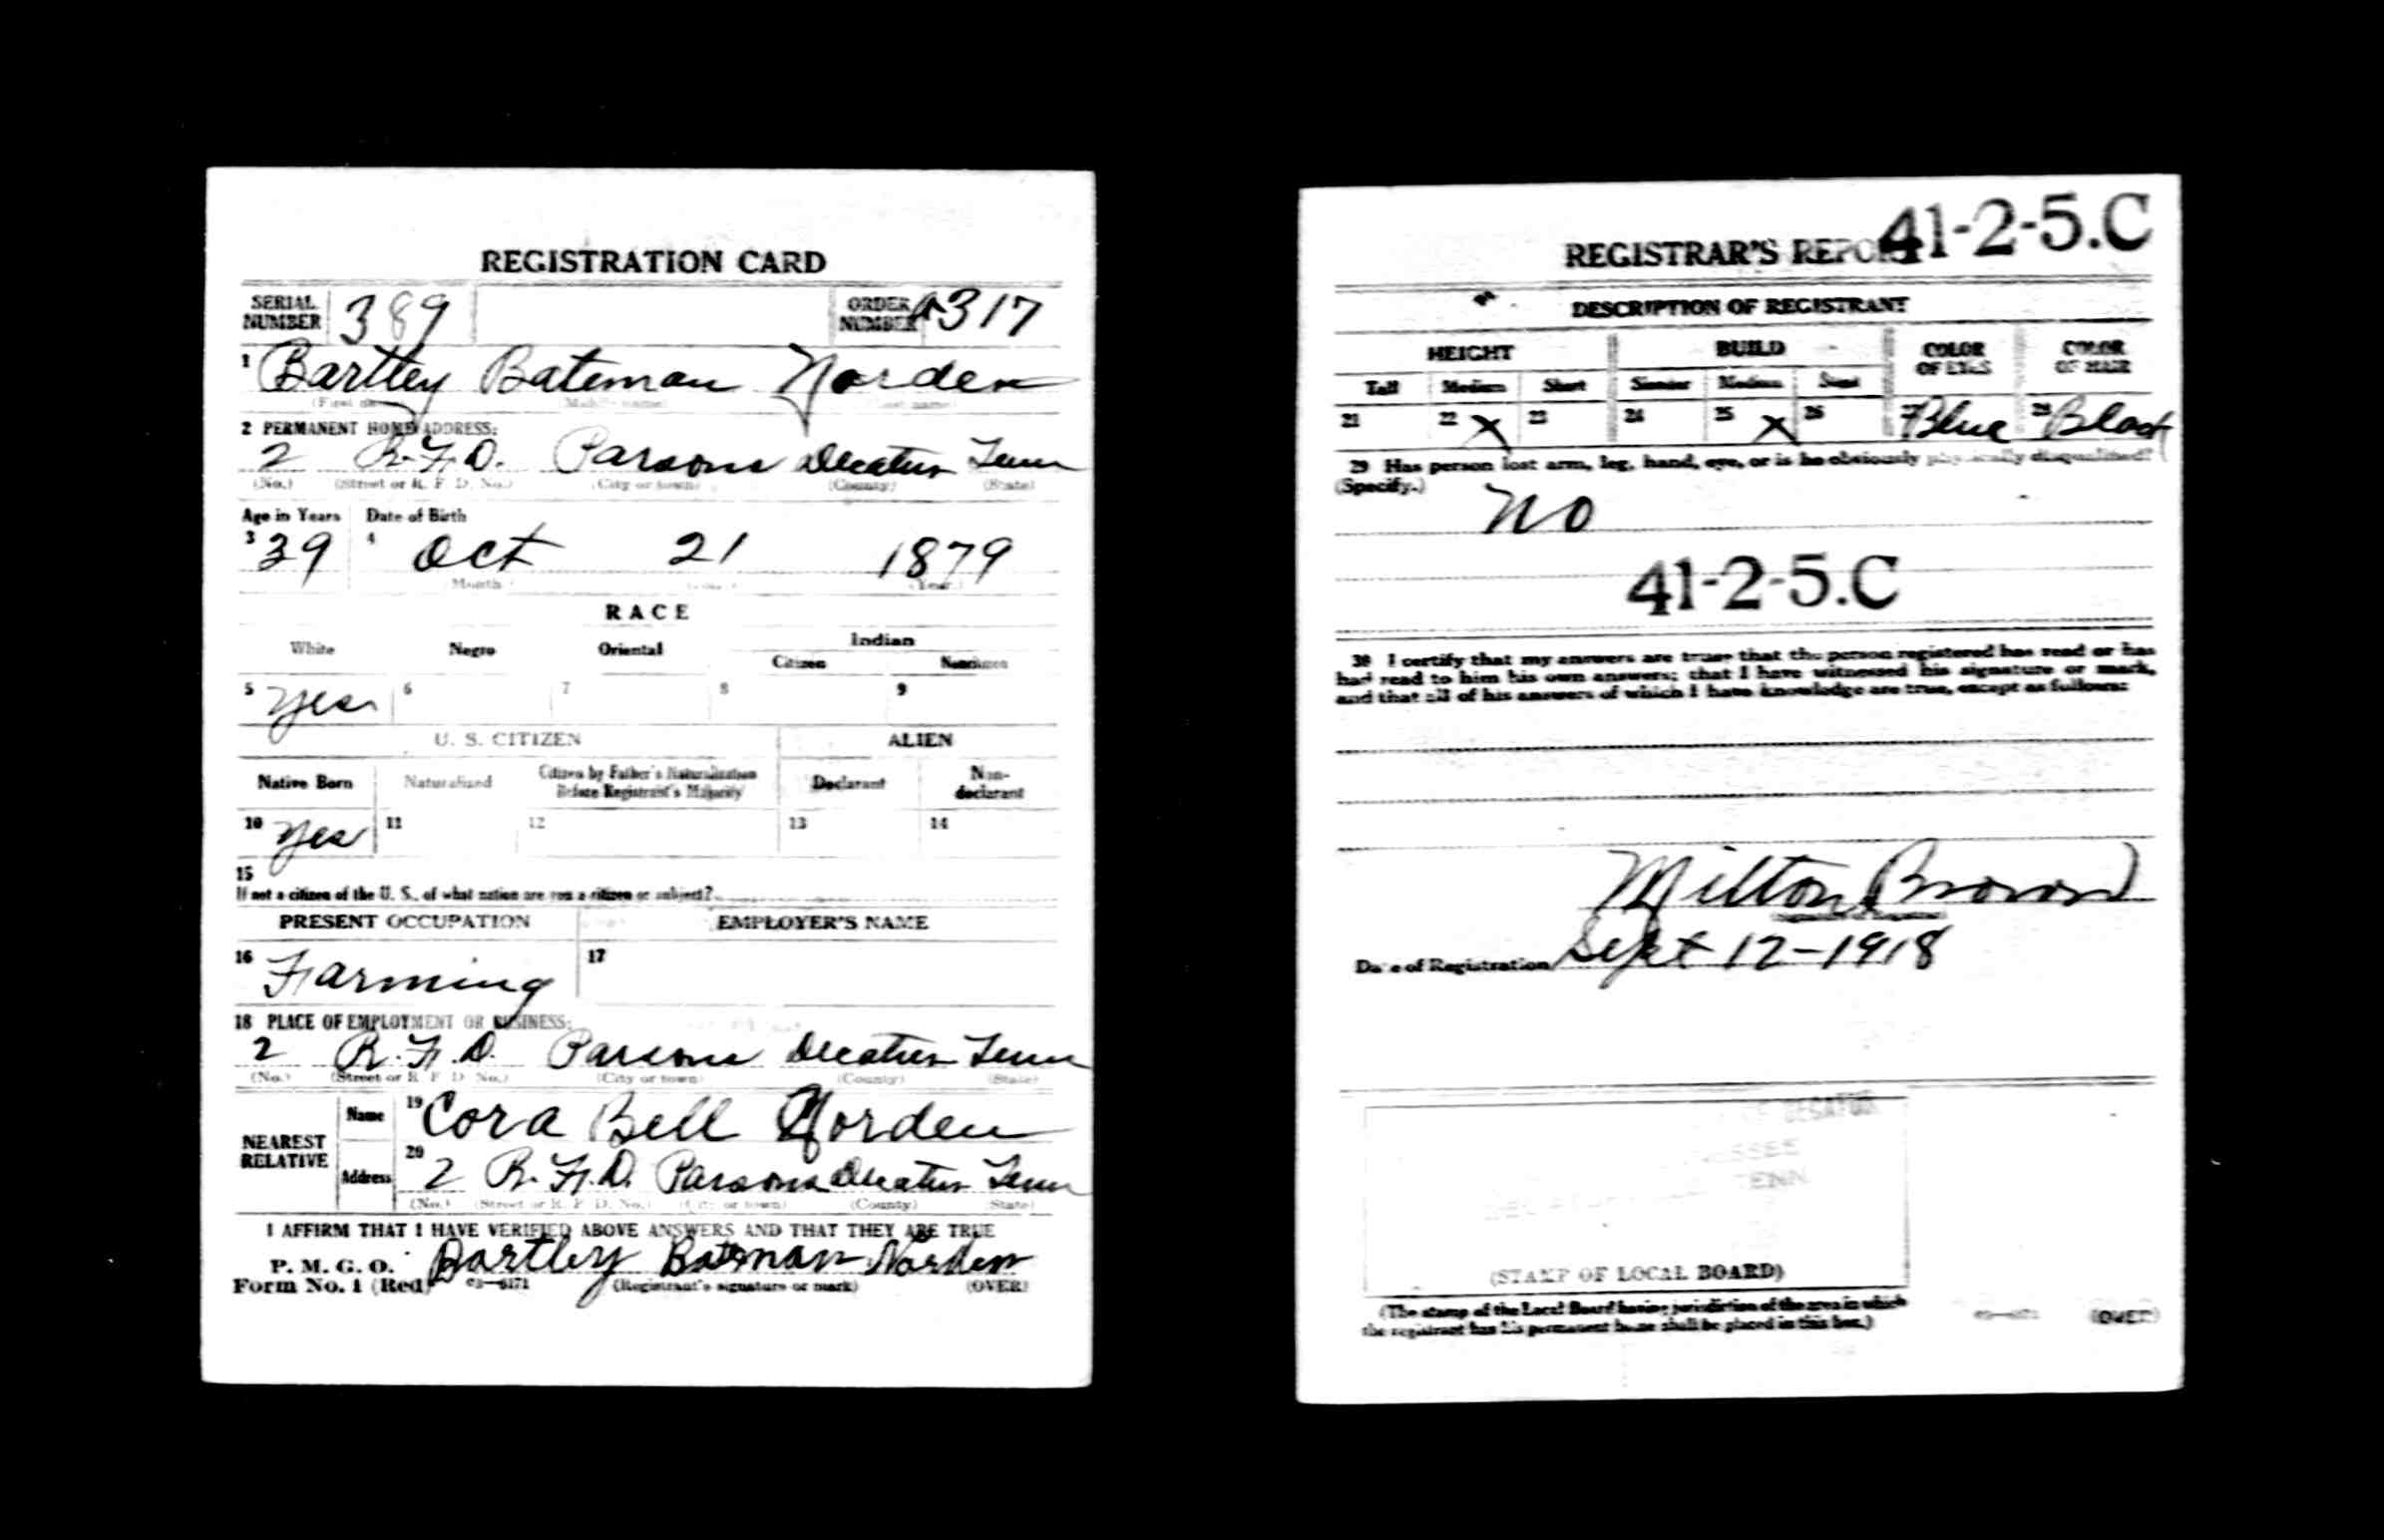 REGISTRATION CARD
SERIAL NUMBER 389 ORDER NUMBER A317
1 Bartley Bateman Norden
(First name) (Middle name) (Last name)
2 PERMANENT HOME ADDRESS:
2 R.F.D. Parsons Decatur Tenn
(No.) (Street or R. F. D. No.) (City or town) (County) (State)
Age in Years Date of Birth
3 39 4 Oct 21 1879
Month (Year)
RACE
White Negro Oriental Indian
Citizen Noncitizen
5 Yes 6 7 8 9
U. S. CITIZEN ALIEN
Native Born Naturalized Citizen by Father's Naturalization Before Registrant's Majority Declarant Non-declarant
10 Yes 11 12 13 14
15
If not a citizen of the U. S., of what nation are you a citizen or subject?
PRESENT OCCUPATION EMPLOYER'S NAME
16 Farming 17
18 PLACE OF EMPLOYMENT OR BUSINESS:
2 R.F.D. Parsons Decatur Tenn
(No.) (Street or R. F. D. No.) (City or town) (County) (State)
NEAREST RELATIVE
Name 19 Cora Bell Norden
Address 20 2 R.F.D. Parsons Decatur Tenn
(No.) (Street or R. F. D. No.) (City or town) (County) (State)
I AFFIRM THAT I HAVE VERIFIED ABOVE ANSWERS AND THAT THEY ARE TRUE
P. M. G. O.
Form No. 1 (Red) Bartley Bateman Norden
(Registrant's signature or mark) (OVER)
REGISTRAR'S REPORT 41-2-5.C
DESCRIPTION OF REGISTRANT
HEIGHT BUILD COLOR OF EYES COLOR OF HAIR
Tall Medium Short Slender Medium Stout
21 22 X 23 24 25 X 26 27 Blue 28 Black
29 Has person lost arm, leg, hand, eye, or is he obviously physically disqualified?
(Specify.) No
41-2-5.C
30 I certify that my answers are true; that the person registered has read or has
had read to him his own answers; that I have witnessed his signature or mark,
and that all of his answers of which I have knowledge are true, except as follows:
Milton Brown
Date of Registration Sept 12-1918
TENN
(STAMP OF LOCAL BOARD)
(The stamp of the Local Board having jurisdiction of the area in which
the registrant has his permanent home shall be placed in this box.)
(OVER)